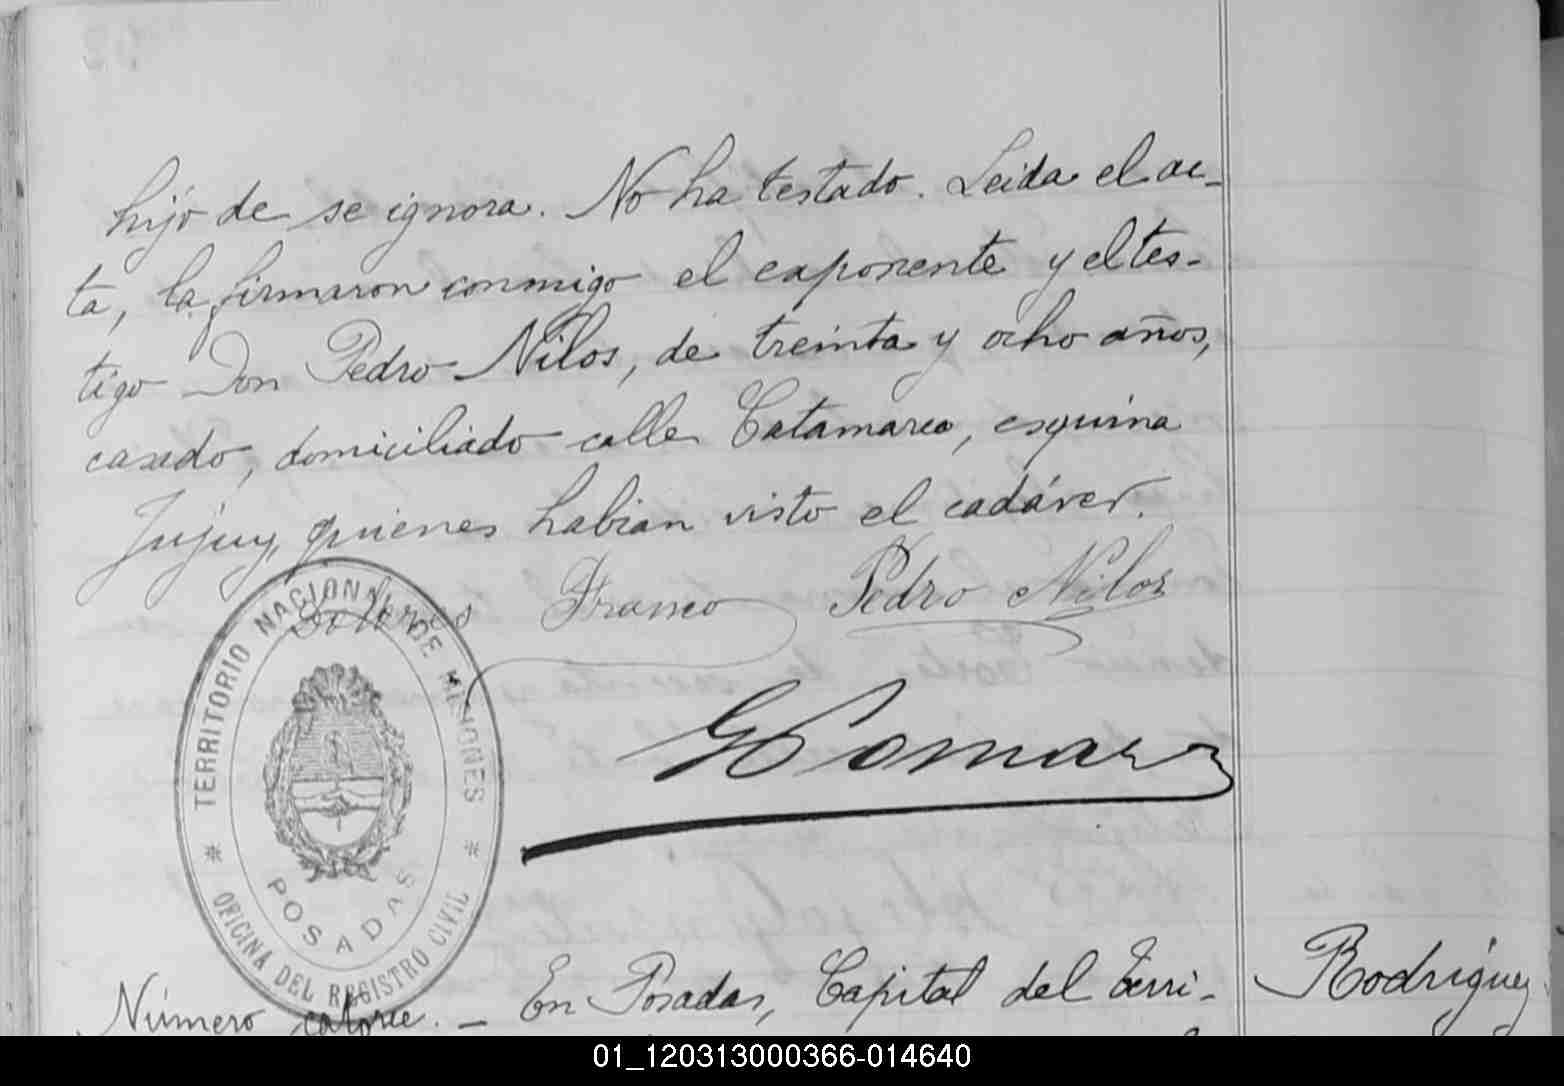 hijo de se ignora. No ha testado. Leida el ac-
ta, la firmaron conmigo el exponente y el tes-
tigo Don Pedro Nilos, de treinta y ocho años,
casado, domiciliado calle Catamarca, esquina
Jujuy, quienes habian visto el cadáver.
Dolores Franco Pedro Nilos
TERRITORIO NACIONAL DE MISIONES
POSADAS
* OFICINA DEL REGISTRO CIVIL *
Número catorce. — En Posadas, Capital del Terri-
Rodríguez
01_120313000366-014640